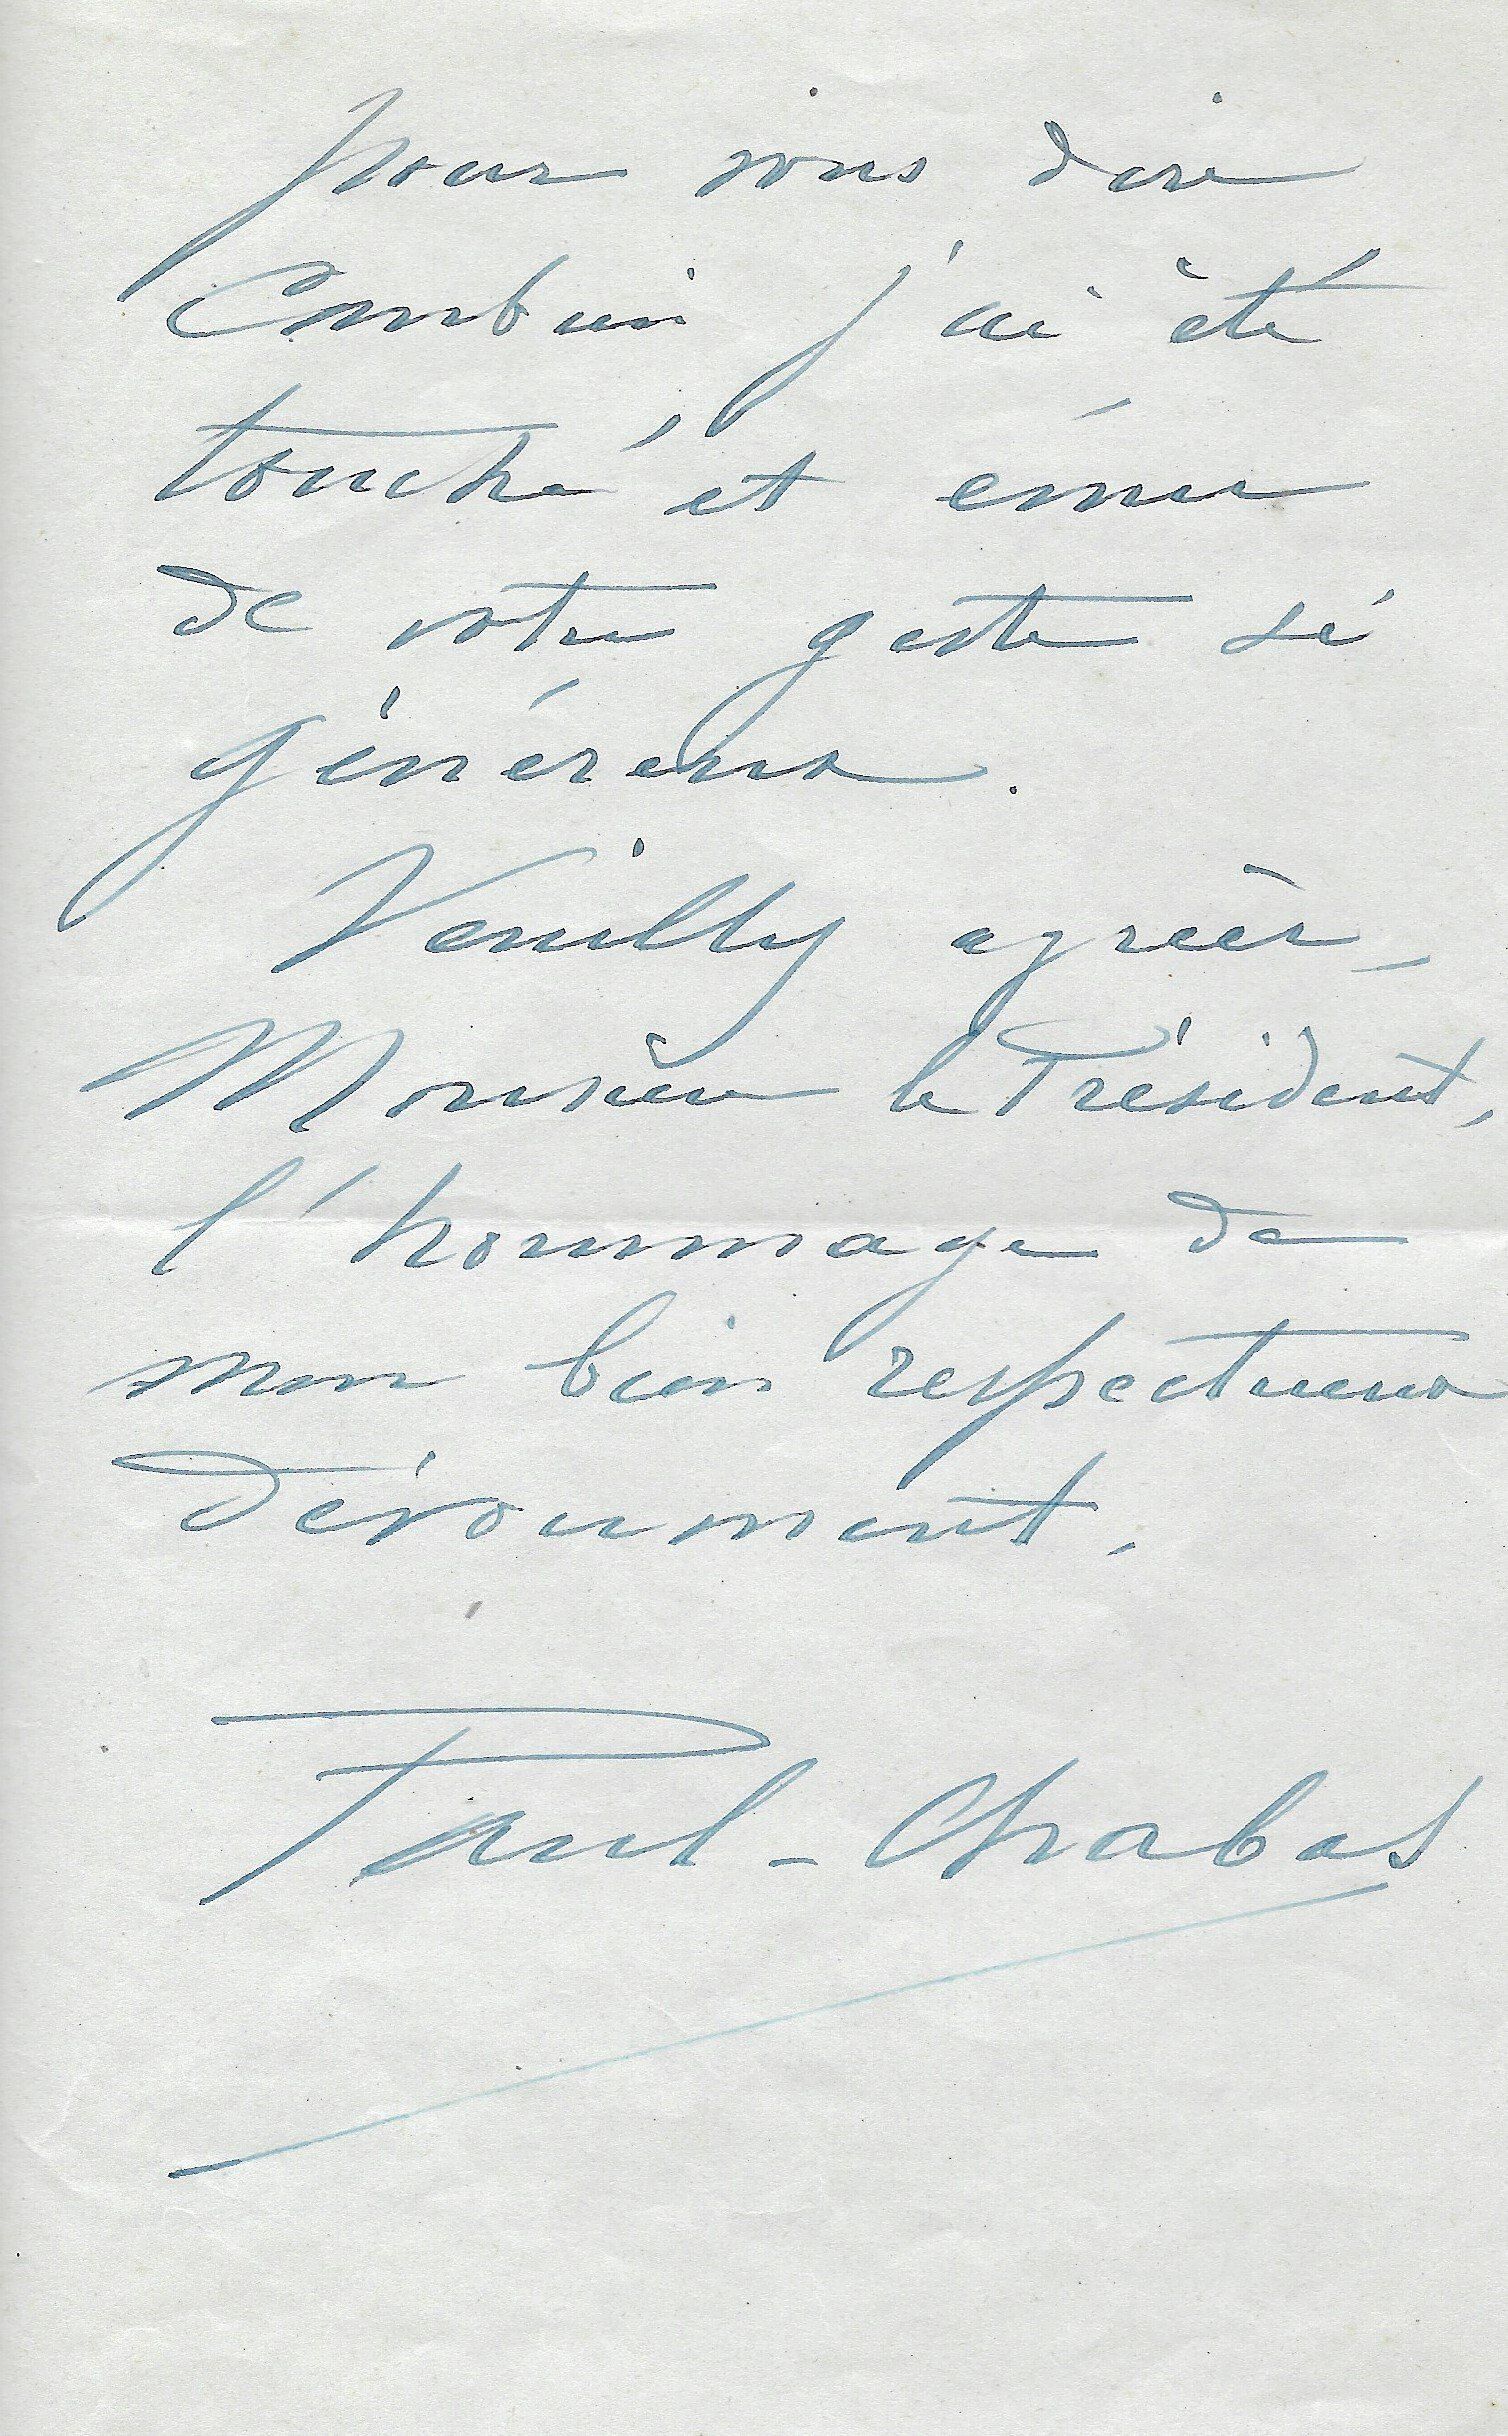 pour vous dire
Combien j'ai été
touché et ému
de votre geste si
généreux.
Veuillez agréer,
Monsieur le Président,
l'hommage de
mon bien respectueux
dévoument.
Paul-Chabas